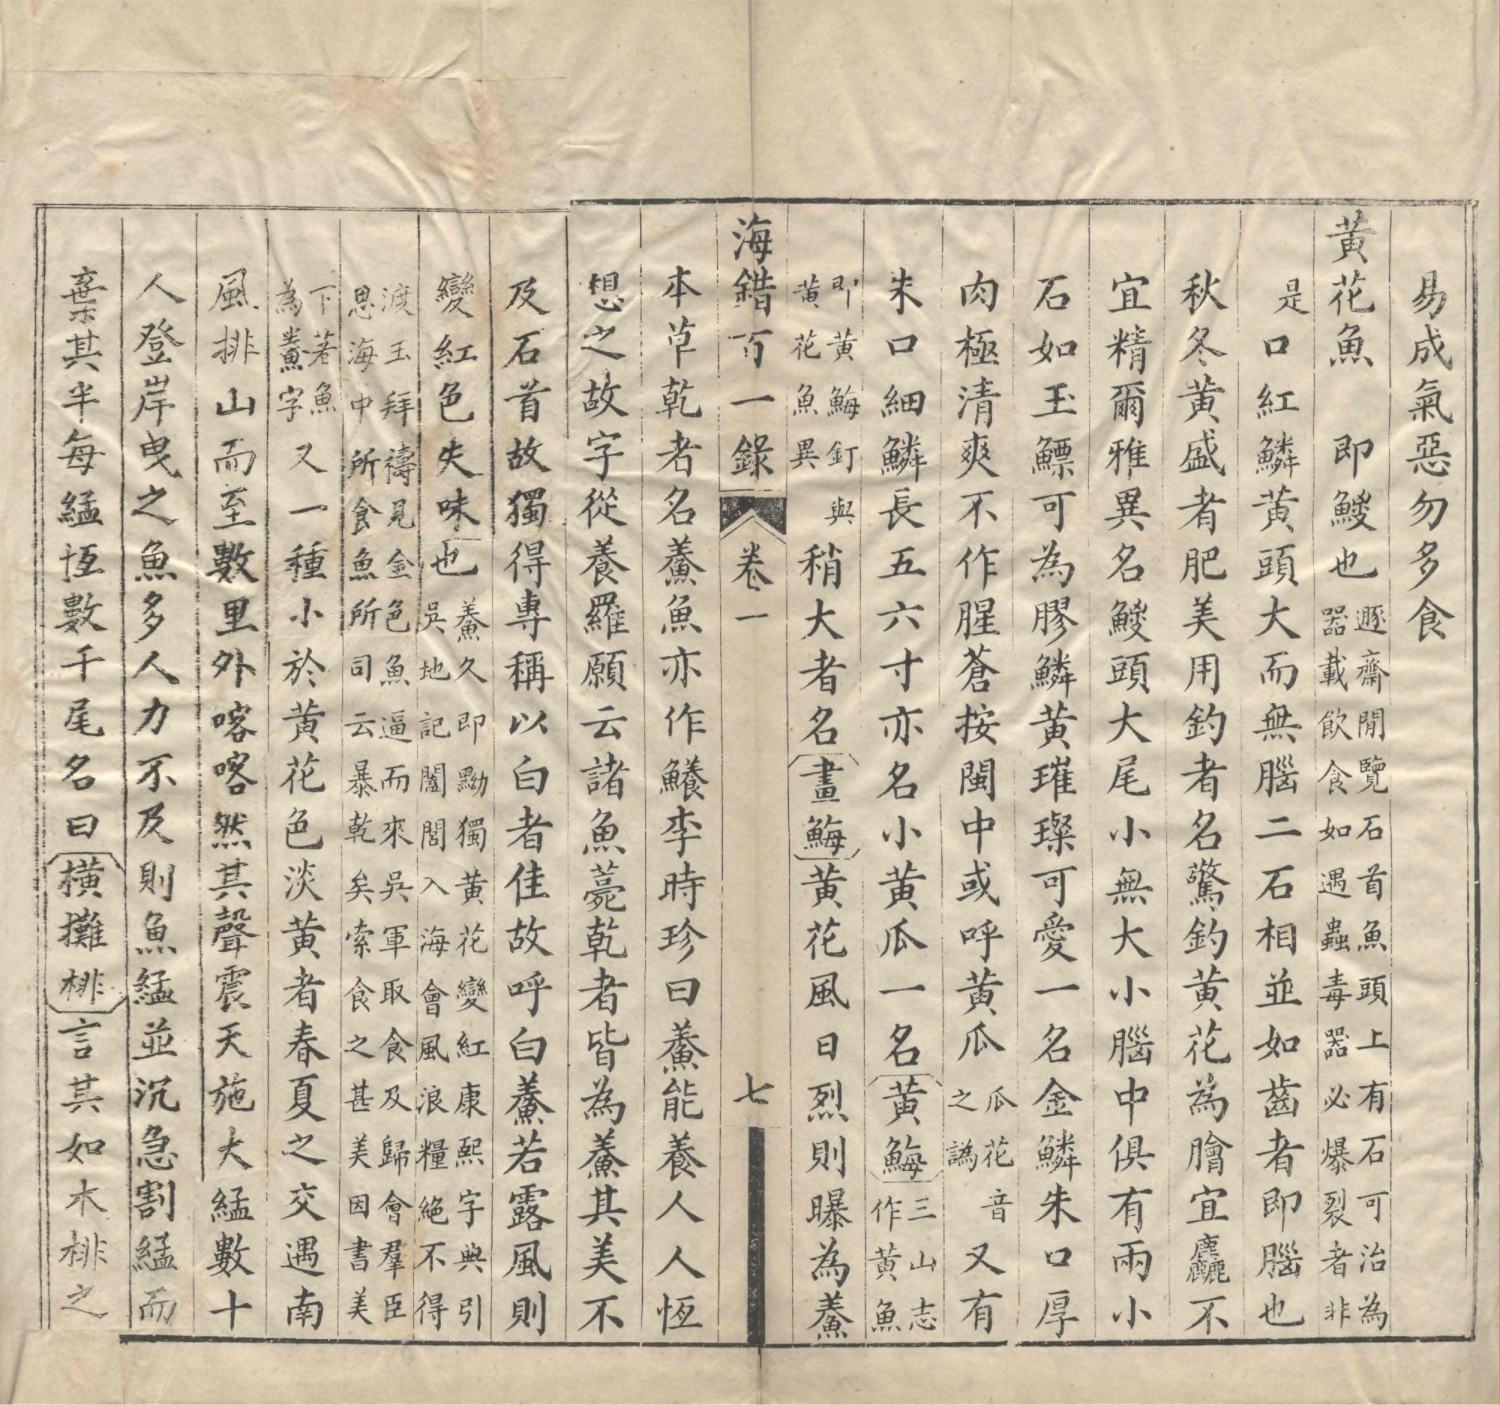 易成氣惡勿多食
黃花魚　即鯼也
遯齋閒覽石首魚頭上有石可治為
器載飲食如遇蟲毒器必爆裂者非
是口紅鱗黃頭大而無腦二石相並如齒者即腦也
秋冬黃盛者肥美用釣者名驚釣黃花為膾宜麤不
宜精爾雅異名鯼頭大尾小無大小腦中俱有兩小
石如玉鰾可為膠鱗黃璀璨可愛一名金鱗朱口厚
肉極清爽不作腥蒼按閩中或呼黃瓜
瓜花音
之譌
又有
朱口細鱗長五六寸亦名小黃瓜一名黃䱕
三山志
作黃魚
即黃䱕釘與
黃花魚異
稍大者名畫䱕黃花風日烈則曝為鯗
海錯百一錄　卷一　七
本草乾者名鯗魚亦作鱶李時珍曰鯗能養人人恆
想之故字從養羅願云諸魚薧乾者皆為鯗其美不
及石首故獨得專稱以白者佳故呼白鯗若露風則
變紅色失味也
鯗久即黝獨黃花變紅康熙字典引
吳地記闔閭入海會風浪糧絕不得
渡王拜禱見金色魚逼而來吳軍取食及歸會羣臣
思海中所食魚所司云暴乾矣索食之甚美因書美
下著魚
為鯗字
又一種小於黃花色淡黃者春夏之交遇南
風排山而至數里外喀喀然其聲震天施大數十
人登岸曳之魚多人力不及則魚並沉急割而
棄其半每恆數千尾名曰橫攤棑言其如木棑之